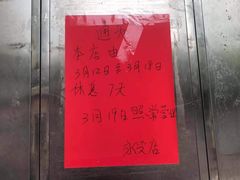 通
本店由
3月12日至3月18日
休息 7天
3月19日照常营业
店